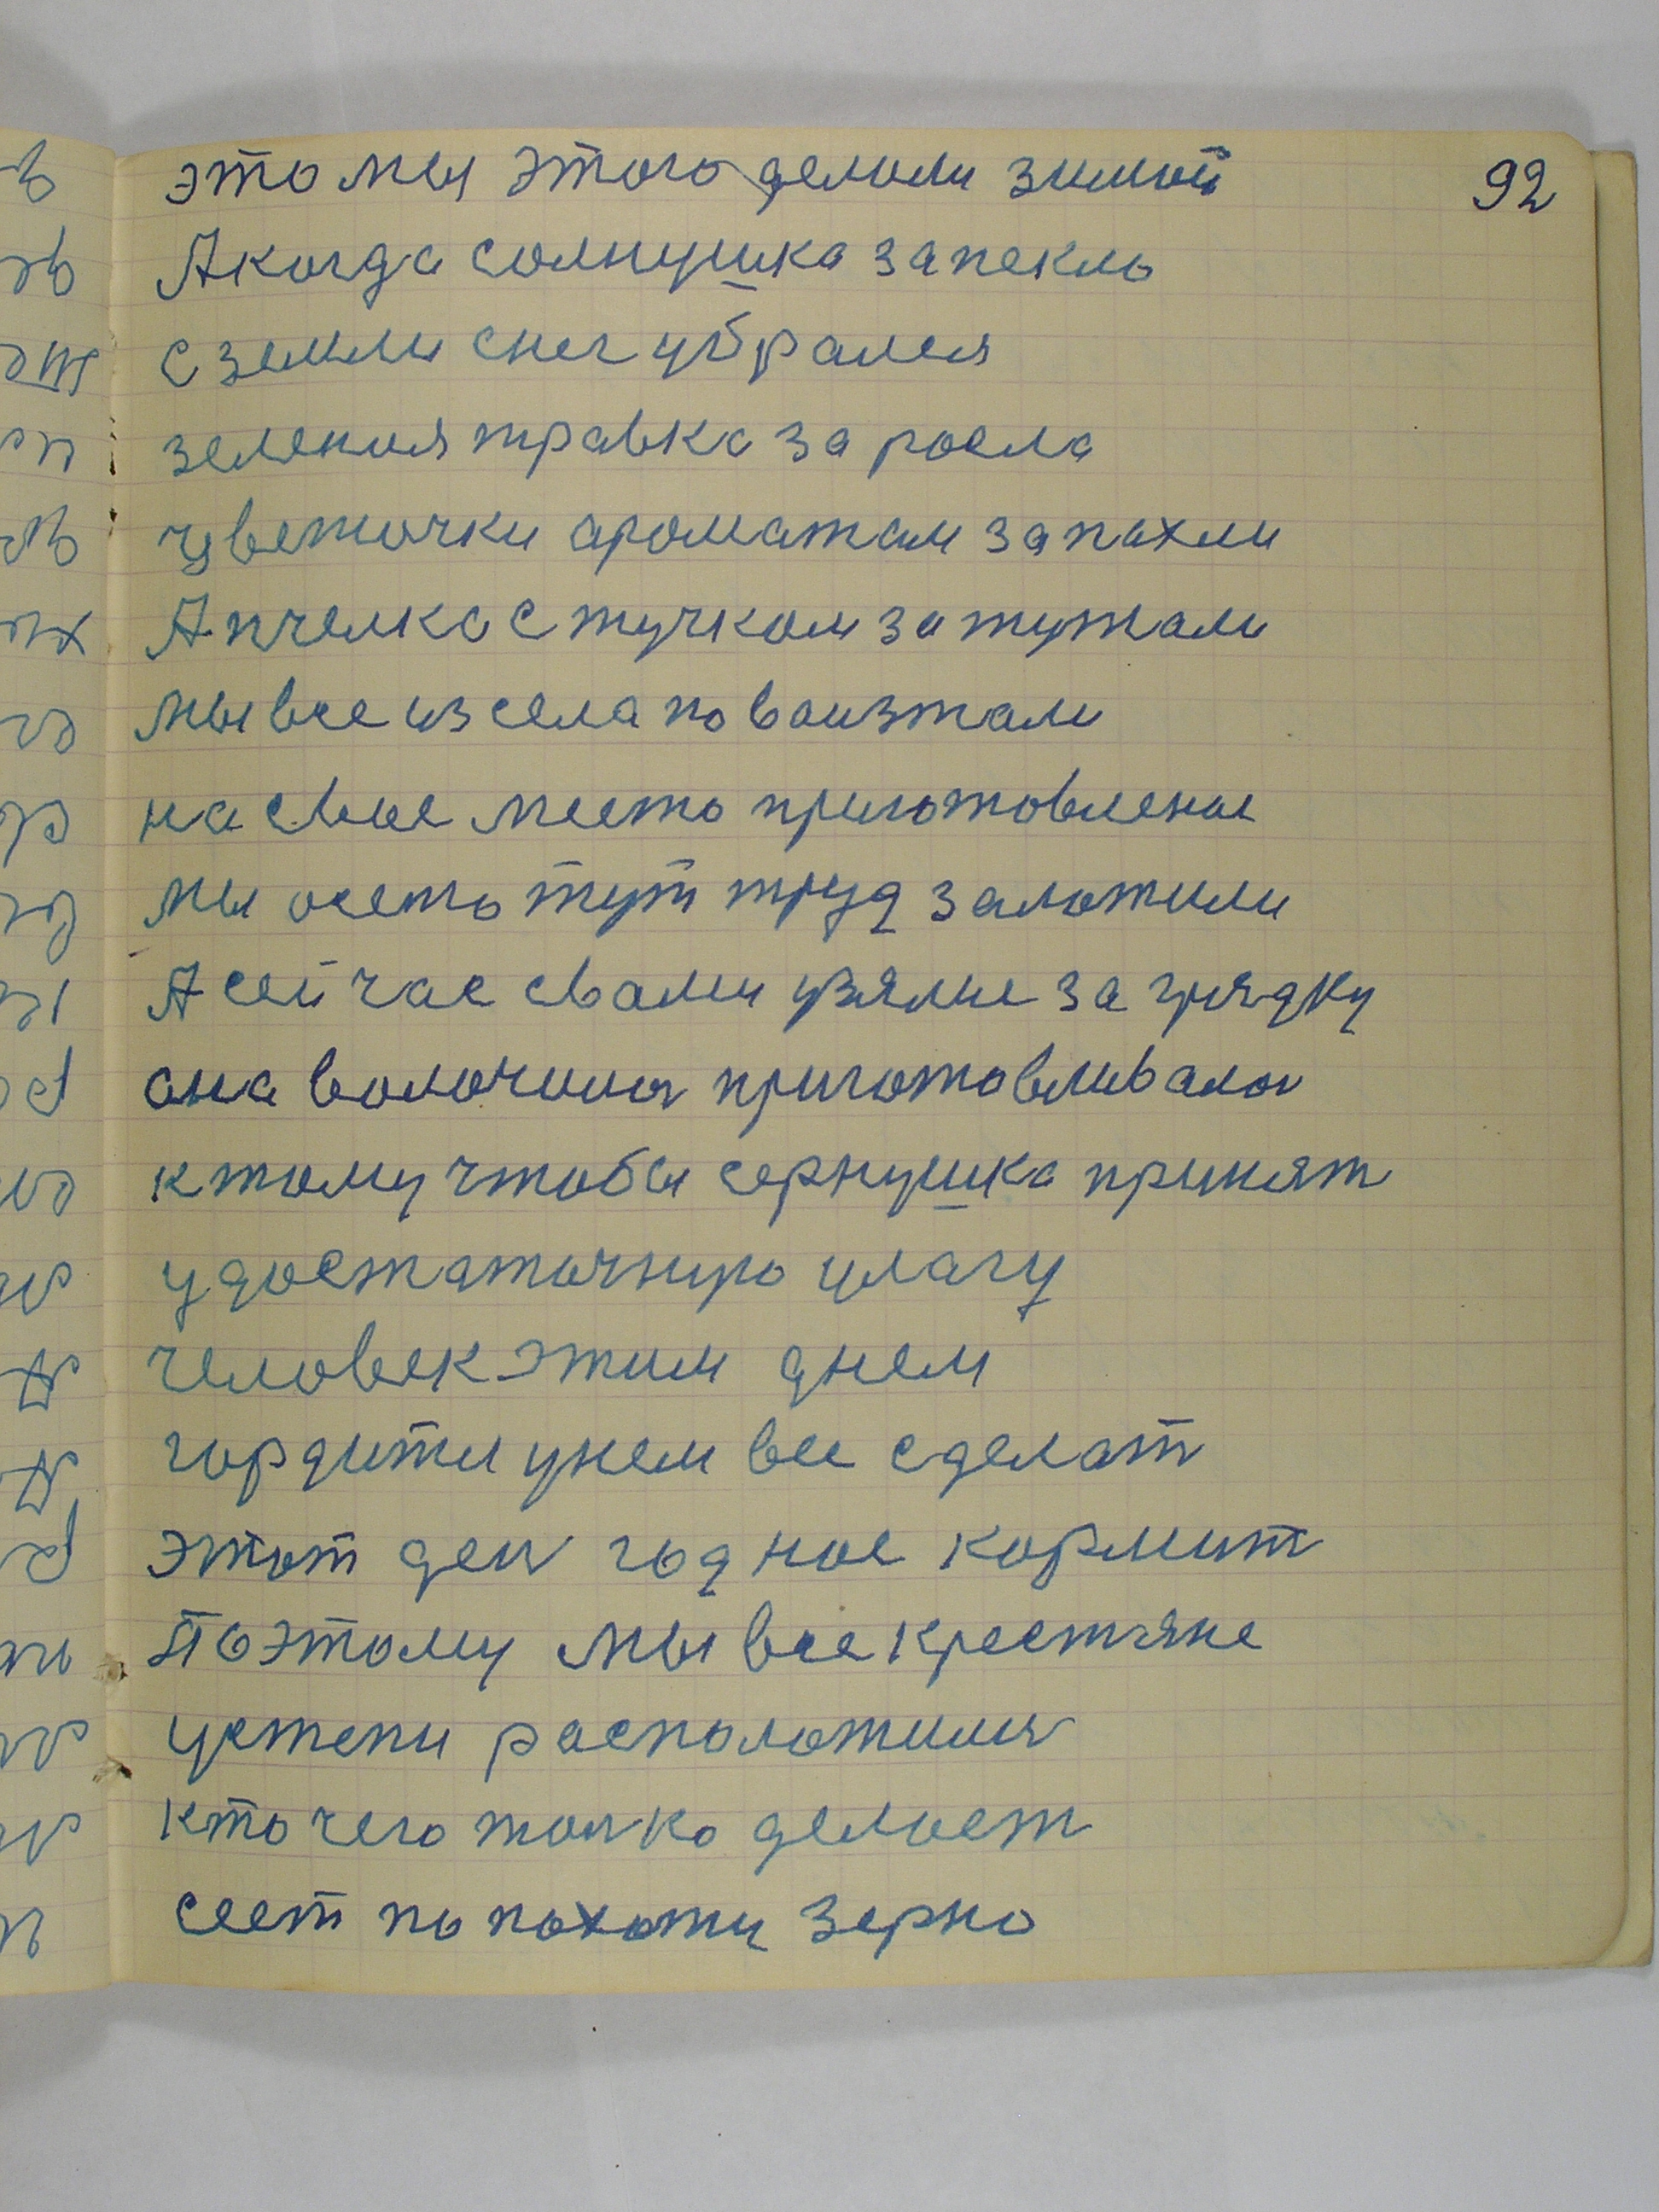 это мы этого делали зимой
92
А когда солнушка запекль
с земли снег убрался
зеления травка за росла
цветочки ароматам запахли
А пчелка с жучком за жужали
мы все из села по воизжали
на свое место приготовленое
мы осенъ тут труд заложили
А сейчас с вами узялис за грядку
она волочилас приготовливалас
к тому чтобы сернушка принят
у достаточную улагу
человек этим днем
гордится унем все сделат
этот ден год нас кормит
Поэтому мы все крестяне
устепи расположилис
кто чего толко делает
сеет по пахоти зерно